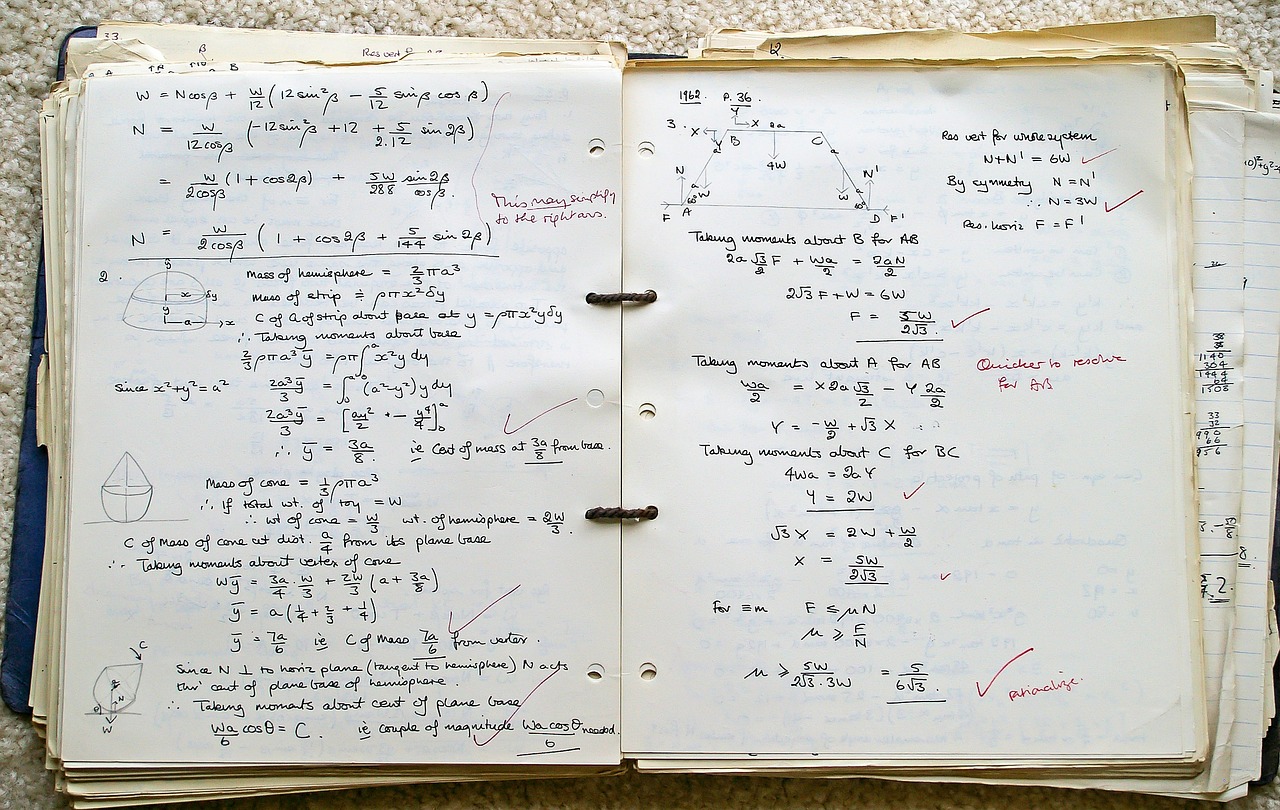 33.
β
Res vert
B
W = N cosβ + W/12 (12 sin²β − 5/12 sinβ cosβ)
N = W/12cosβ (−12 sin²β + 12 + 5/2.12 sin 2β)
= W/2cosβ (1 + cos2β) + 5W/288 sin2β/cosβ.
This may simplify
to the right ans.
N = W/2cosβ (1 + cos 2β + 5/144 sin 2β)
2.
y
x δy
y
a x
Mass of hemisphere = 2/3 πa³
Mass of strip ≑ ρπx²δy
C of G of strip about base at y = ρπx²yδy
∴ Taking moments about base
2/3 ρπa³ȳ = ρπ∫₀ᵃ x²y dy
Since x²+y²=a² 2a³ȳ/3 = ∫₀ᵃ (a²−y²) y dy
∴ ȳ = 3a/8 ie Cent of mass at 3a/8 from base.
Mass of cone = 1/3 ρπa³
∴ If total wt. of toy = W
∴ wt of cone = W/3 wt. of hemisphere = 2W/3.
C of Mass of cone at dist. a/4 from its plane base
∴ Taking moments about vertex of cone
Wȳ = 3a/4 · W/3 + 2W/3 (a + 3a/8)
ȳ = a(1/4 + 2/3 + 1/4)
ȳ = 7a/6 ie C of Mass 7a/6 from vertex.
C
N
θ
W
Since N ⊥ to horiz plane (tangent to hemisphere) N acts
thro' cent of plane base of hemisphere.
∴ Taking moments about cent of plane base
Wa/6 cosθ = C. ie couple of magnitude Wa cosθ/6 needed.
12.
1962. P. 36.
3.
Y
X X 2a
Y B C
a a
4W
N a a N'
W W
60° 60°
F A D F'
Res vert for whole system
N+N' = 6W
By symmetry N = N'
∴ N = 3W
Res. horiz F = F'
Taking moments about B for AB
2a √3/2 F + Wa/2 = 2aN/2
2√3 F + W = 6W
F = 5W/2√3.
Taking moments about A for AB
Quicker to resolve
for AB
Wa/2 = X 2a √3/2 − Y 2a/2
Y = −W/2 + √3 X
Taking moments about C for BC
4Wa = 2aY
Y = 2W
√3 X = 2W + W/2
X = 5W/2√3
For ≡m F ≤ μN
μ ≥ F/N
μ ≥ 5W/2√3.3W = 5/6√3.
rationalize.
38
38
1140
304
1444
64
1508
33
32
990
66
956
8.
2.